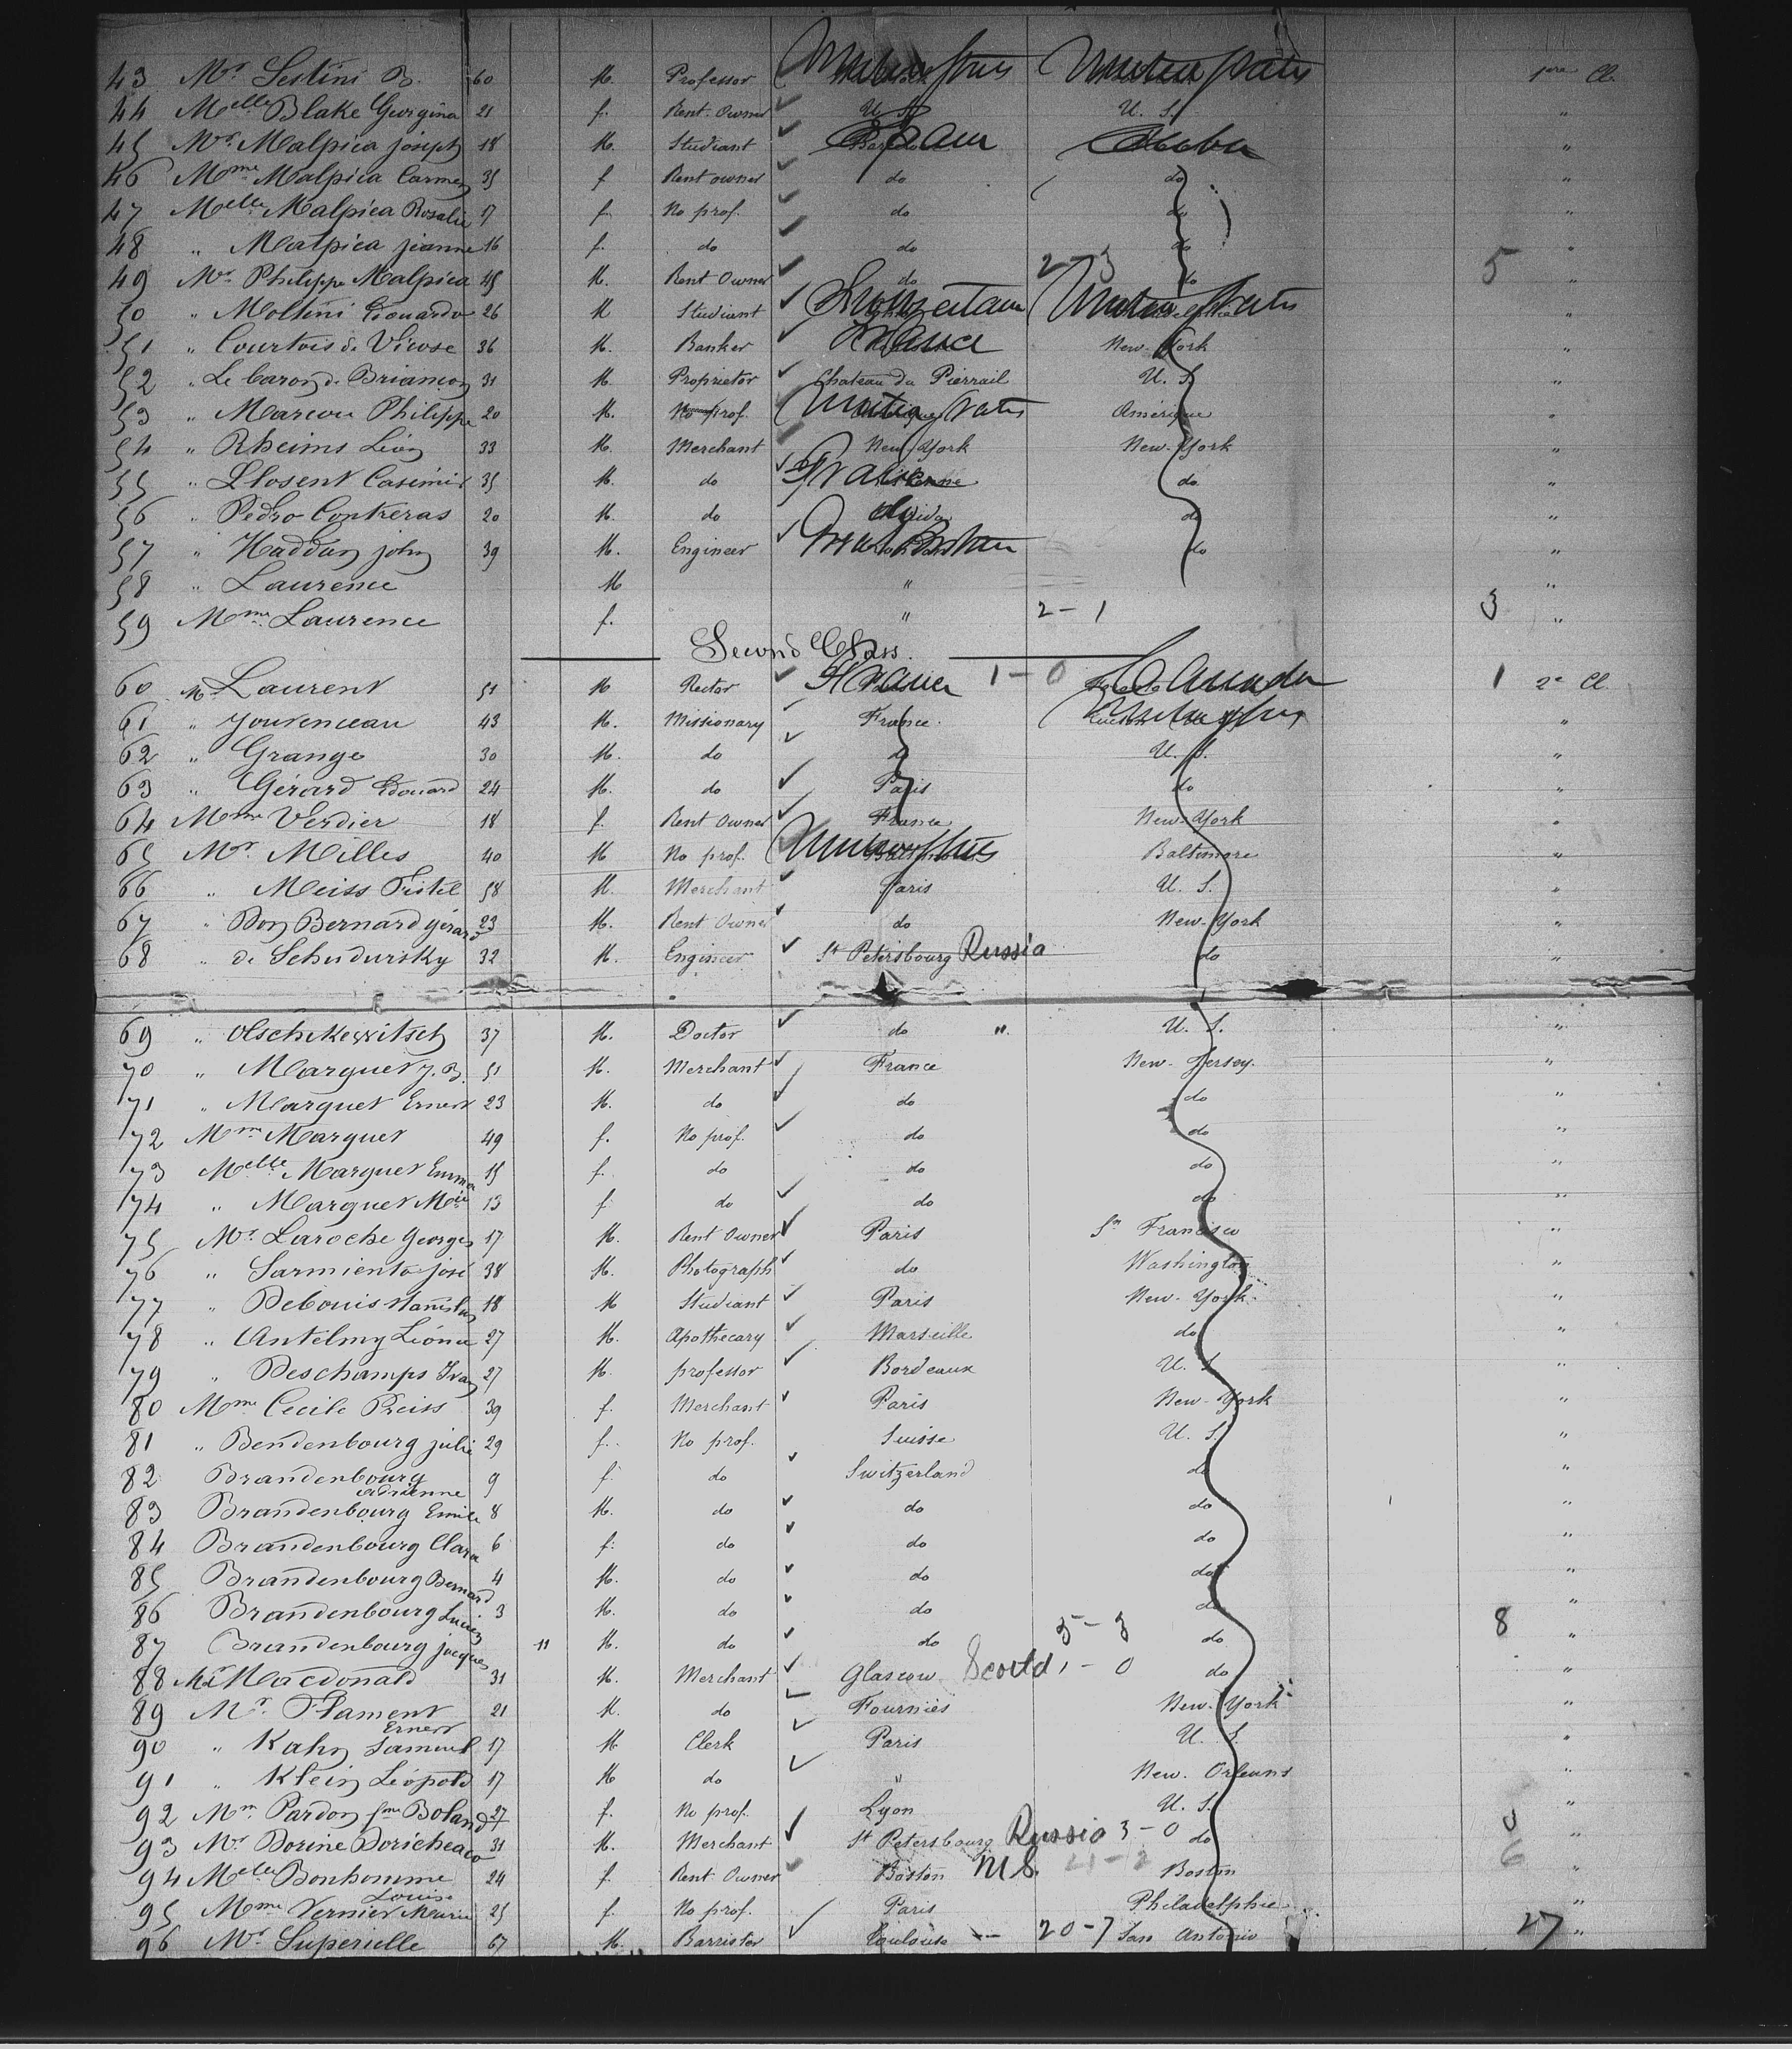 43 Mr Sestini B. 60 M. Professor United States United States 1ere Cl.
44 Melle Blake Georgina 21 f. Rent. Owner U. S. U. S. "
45 Mr. Malpica joseph 18 M. Studiant Spain Cuba "
46 Mme Malpica Carmen 35 f Rent owner do do "
47 Melle Malpica Rosalie 17 f. No prof. do do "
48 " Malpica jeanne 16 f. do do do "
49 Mr. Philippe Malpica 45 M. Rent Owner do 2-3 do 5 "
50 " Moltini Edouardo 26 M Studiant United States "
51 " Courtois de Vicose 36 M. Banker France New-York "
52 " Le baron de Briançon 31 M. Proprietor Chateau du Pierrail U. S. "
53 " Marcou Philippe 20 M. No prof. United States Amérique "
54 " Rheims Léon 33 M. Merchant New-York New-York "
55 " Llosent Casimir 35 M. do do "
56 " Pedro Contreras 20 M. do do do "
57 " Haddan john 39 M. Engineer Great Britain do "
58 " Laurence M " "
59 Mme. Laurence f. " 2-1 3 "
Second Class.
60 Mr Laurent 51 M Rector France 1-0 Canada 1 2e Cl.
61 " Jouvenceau 43 M. Missionary France. United States "
62 " Grange 30 M. do do U. S. "
63 " Gérard Edouard 24 M. do Paris do "
64 Mme Verdier 18 f. Rent Owner France New-York "
65 Mr. Milles 40 M No prof. United States Baltimore "
66 " Meiss Tistel 58 M. Merchant Paris U. S. "
67 " Don Bernard gérard 23 M. Rent Owner do New-York "
68 " de Schudursky 32 M. Engineer St Petersbourg Russia do "
69 " Olschekewitsch 37 M. Doctor do ". U. S. "
70 " Marguet J. B. 51 M. Merchant France New-Jersey. "
71 " Marguet Ernest 23 M. do do do "
72 Mme Marguet 49 f. No prof. do do "
73 Melle Marguet Emma 15 f. do do do "
74 " Marguet Mie 13 f do do do "
75 Mr. Laroche Georges 17 M. Rent Owner Paris Sn Francisco "
76 " Sarmiento José 38 M. Photograph do Washington "
77 " Debouis Stanislas 18 M Studiant Paris New-York "
78 " Antelmy Léonce 27 M. Apothecary Marseille do "
79 " Deschamps Ivan 27 M. professor Bordeaux U. S. "
80 Mme Cecile Preiss 39 f. Merchant Paris New-York "
81 " Bendenbourg julie 29 f. No prof. Suisse U. S. "
82 Brandenbourg Adrienne 9 f. do Switzerland do "
83 Brandenbourg Emile 8 M. do do do "
84 Brandenbourg Clara 6 f. do do do "
85 Brandenbourg Bernard 4 M. do do do "
86 Brandenbourg Lucien 3 M. do do do "
87 Brandenbourg jacques 11 M. do do 5-3 do 8 "
88 Mr Macdonald 31 M. Merchant Glascow Scotld 1-0 do "
89 Mr. Flament Ernest 21 M. do Fournies New-York "
90 " Kahn Samuel 17 M Clerk Paris U. S. "
91 " Klein Léopold 17 M do " New. Orleans "
92 Mme. Pardon fme Boland 27 f. No prof. Lyon U. S. "
93 Mr. Dorine Doricheaco 31 M. Merchant St Petersbourg Russia 3-0 do "
94 Melle Bonhomme Louise 24 f. Rent Owner Boston Boston 6 "
95 Mme Vernier Marie 25 f. No prof. Paris Philadelphie "
96 Mr Superielle 67 M. Barrister Toulouse 20-7 San Antonio 27 "